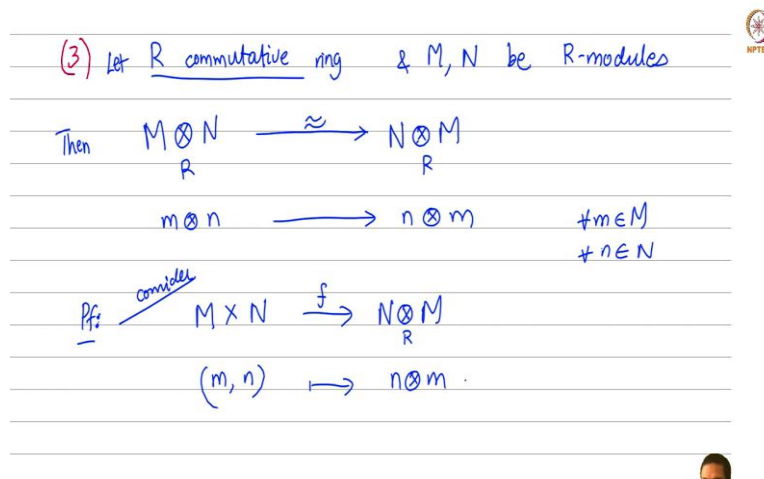 (3) Let R commutative ring & M, N be R-modules
NPTE
Then M ⊗ N ≈ → N ⊗ M
R R
m ⊗ n → n ⊗ m ∀ m ∈ M
∀ n ∈ N
Pf: consider M × N f → N ⊗ M
R
(m, n) ↦ n ⊗ m .